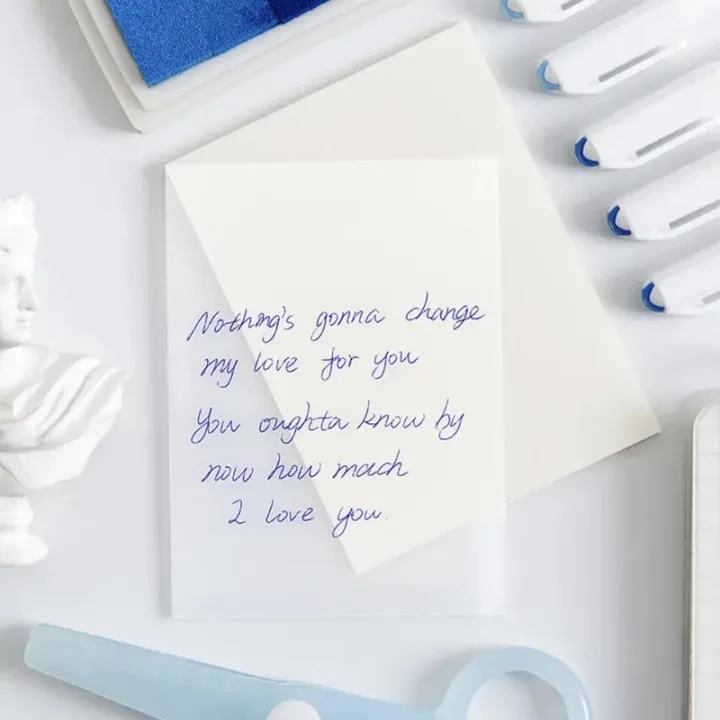 Nothing's gonna change
my love for you
You oughta know by
now how mach
I love you.